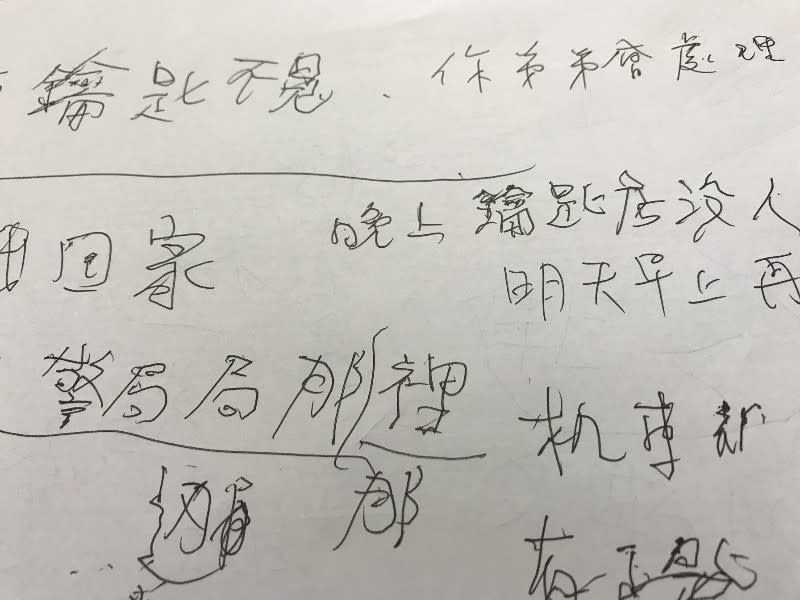 鑰匙不急、你弟弟會處理
晚上鑰匙店沒人
回家
明天早上再
警局局那裡
机車
那